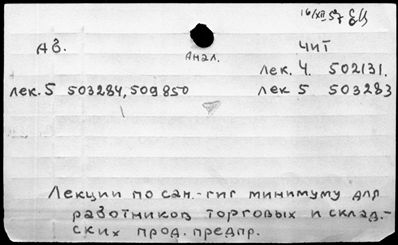 16/XII 57
АВ.
Анал.
ЧИТ
лек. 4. 502131.
лек. 5 503284, 509850
лек 5 503283
Лекции по сан.-гиг минимуму для
работников торговых и склад.-
ских прод. предпр.